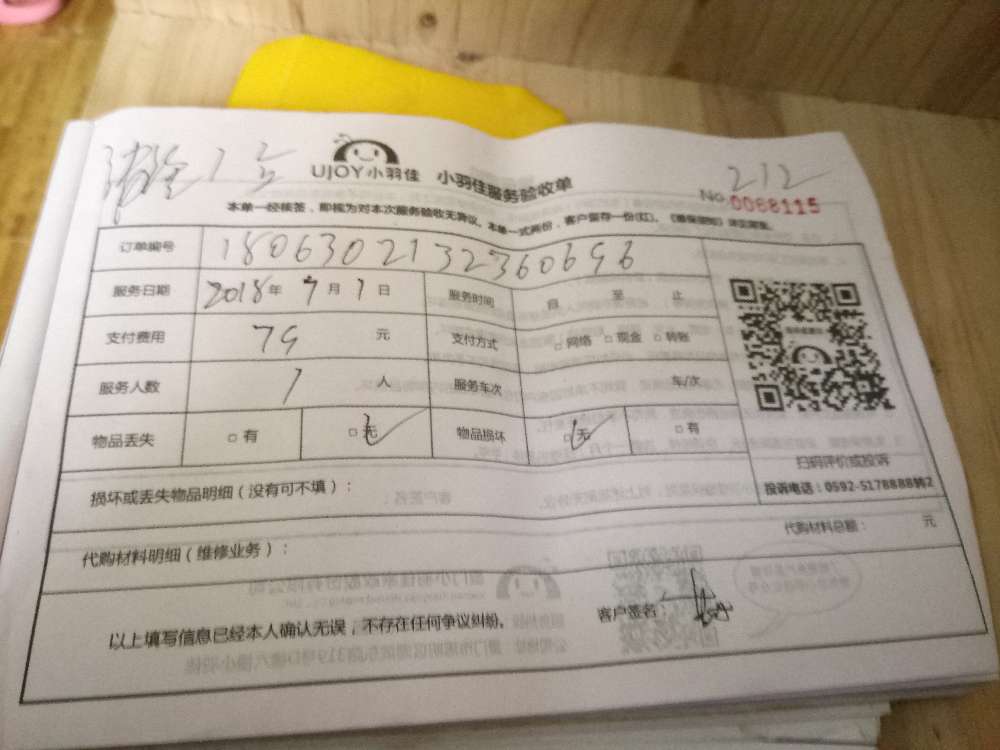 UJOY小羽佳 小羽佳服务验收单
212
No 0088115
本单一经核签，即视为对本次服务验收无异议。本单一式两份，客户留存一份(红)。
订单编号 1806302132360696
服务日期 2018年 7月 1日 服务时间 自 至 止
支付费用 79 元 支付方式 □网络 □现金 □转账
服务人数 1 人 服务车次 车/次
物品丢失 □有 □无 物品损坏 □无 □有
扫码评价或投诉
投诉电话：0592-5178888转2
损坏或丢失物品明细（没有可不填）：
代购材料明细（维修业务）： 代购材料总额： 元
以上填写信息已经本人确认无误，不存在任何争议纠纷。 客户签名：